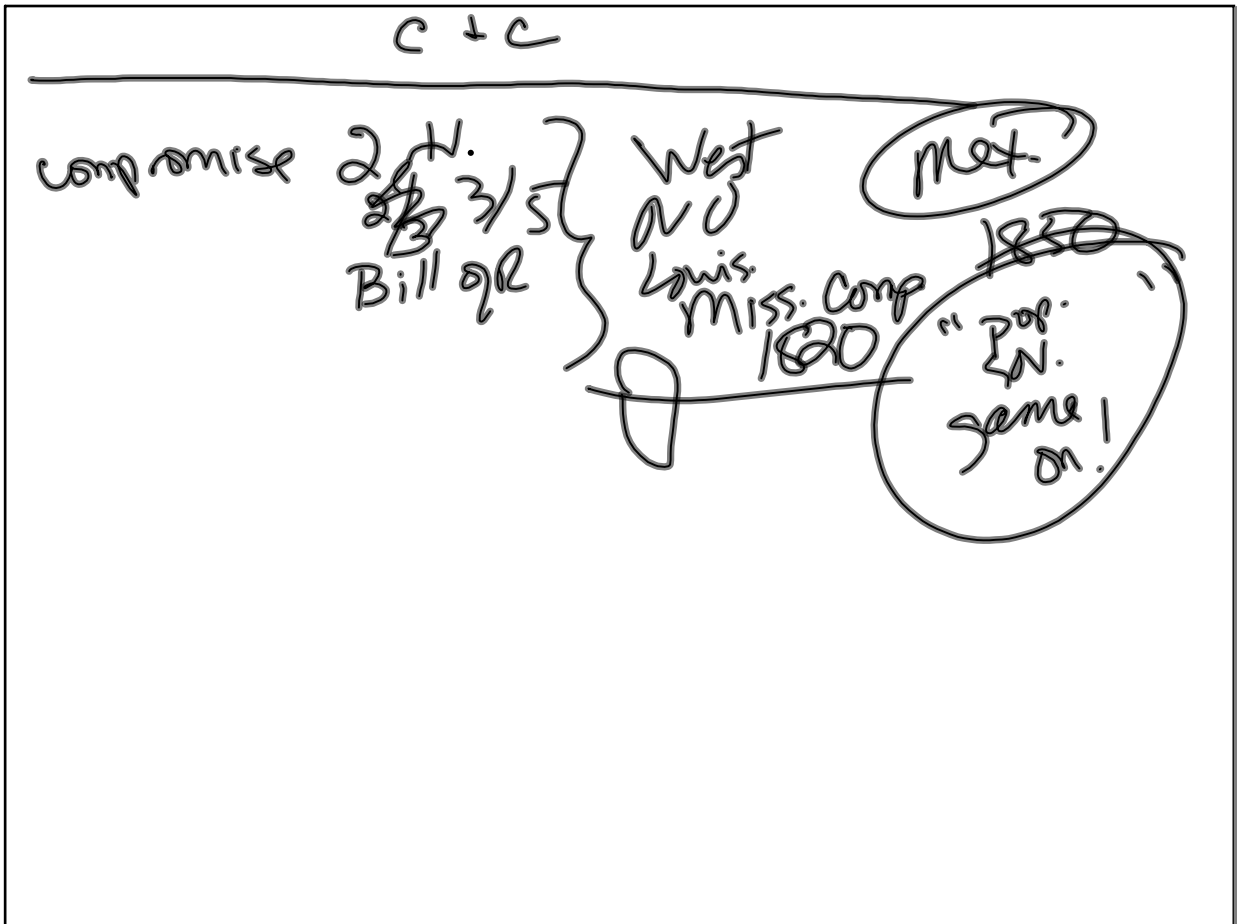 C + C
compromise
2 H.
3/5
Bill of R
West
NO
Louis.
Miss. Comp
1820
Mex.
1850
" Pop.
Sov. "
game
on!